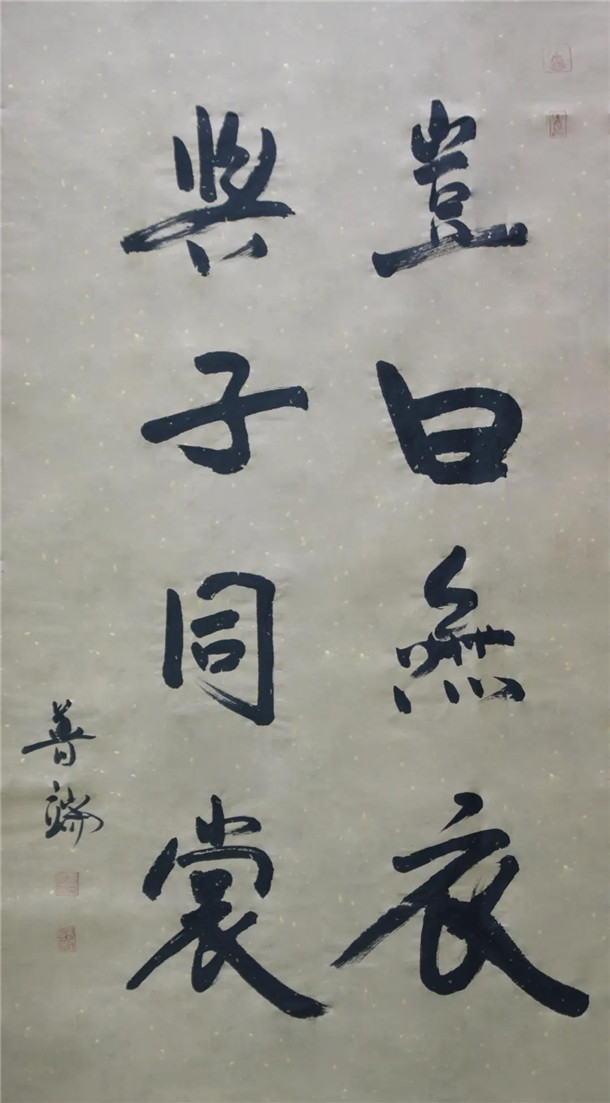 豈曰無衣
與子同裳
普瑞